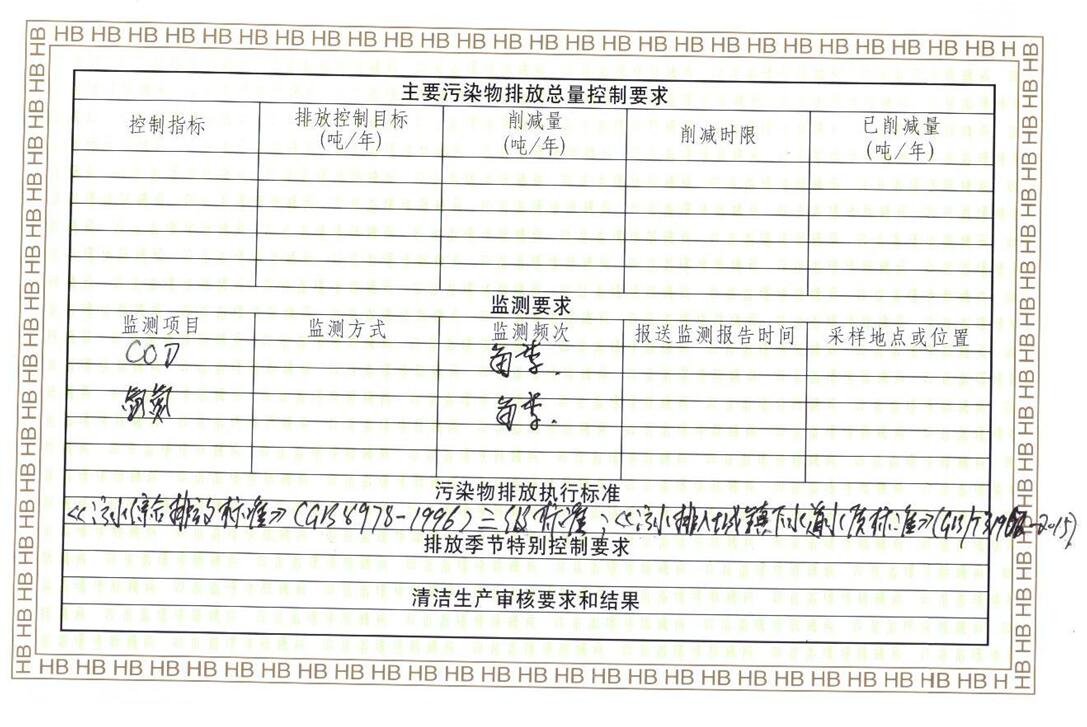 HB HB HB HB HB HB HB HB HB HB HB HB HB HB HB HB HB HB HB HB HB HB HB HB HB HB H HB
主要污染物排放总量控制要求
控制指标 排放控制目标(吨/年) 削减量(吨/年) 削减时限 已削减量(吨/年)
监测要求
监测项目 监测方式 监测频次 报送监测报告时间 采样地点或位置
COD 每季.
氨氮 每季.
污染物排放执行标准
《污水综合排放标准》(GB8978-1996)三级标准;《污水排入城镇下水道水质标准》(GB/T31962-2015)
排放季节特别控制要求
清洁生产审核要求和结果